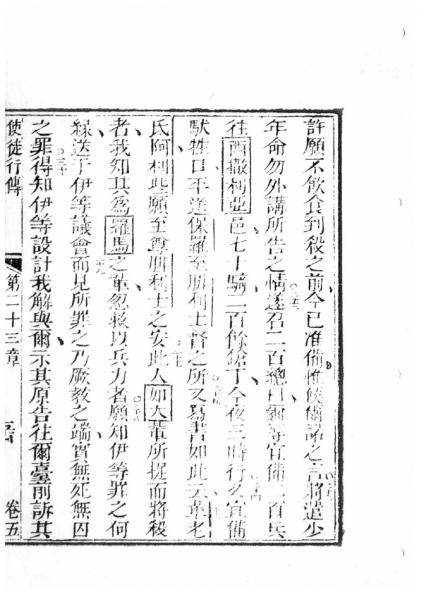 許願不飲食到殺之前今已准備惟候爾諾之言將遣少
年命勿外講所告之情遂召二百總曰爾等宜備二百兵
往西撒利亞邑七十騎二百餘鎗丁今夜三時行矣宜備
獸牲口平送保羅至腓利士督之所又為書如此云革老
氏阿利此願至尊腓利士之安此人如大輩所捉而將殺
者我知其為羅馬之輩忽救以兵力者願知伊等罪之何
緣送于伊等議會而見所罪之乃厥教之端實無死無囚
之罪得知伊等設計我解與爾示其原告往爾臺前訴其
使徒行傳 第二十三章 卷五